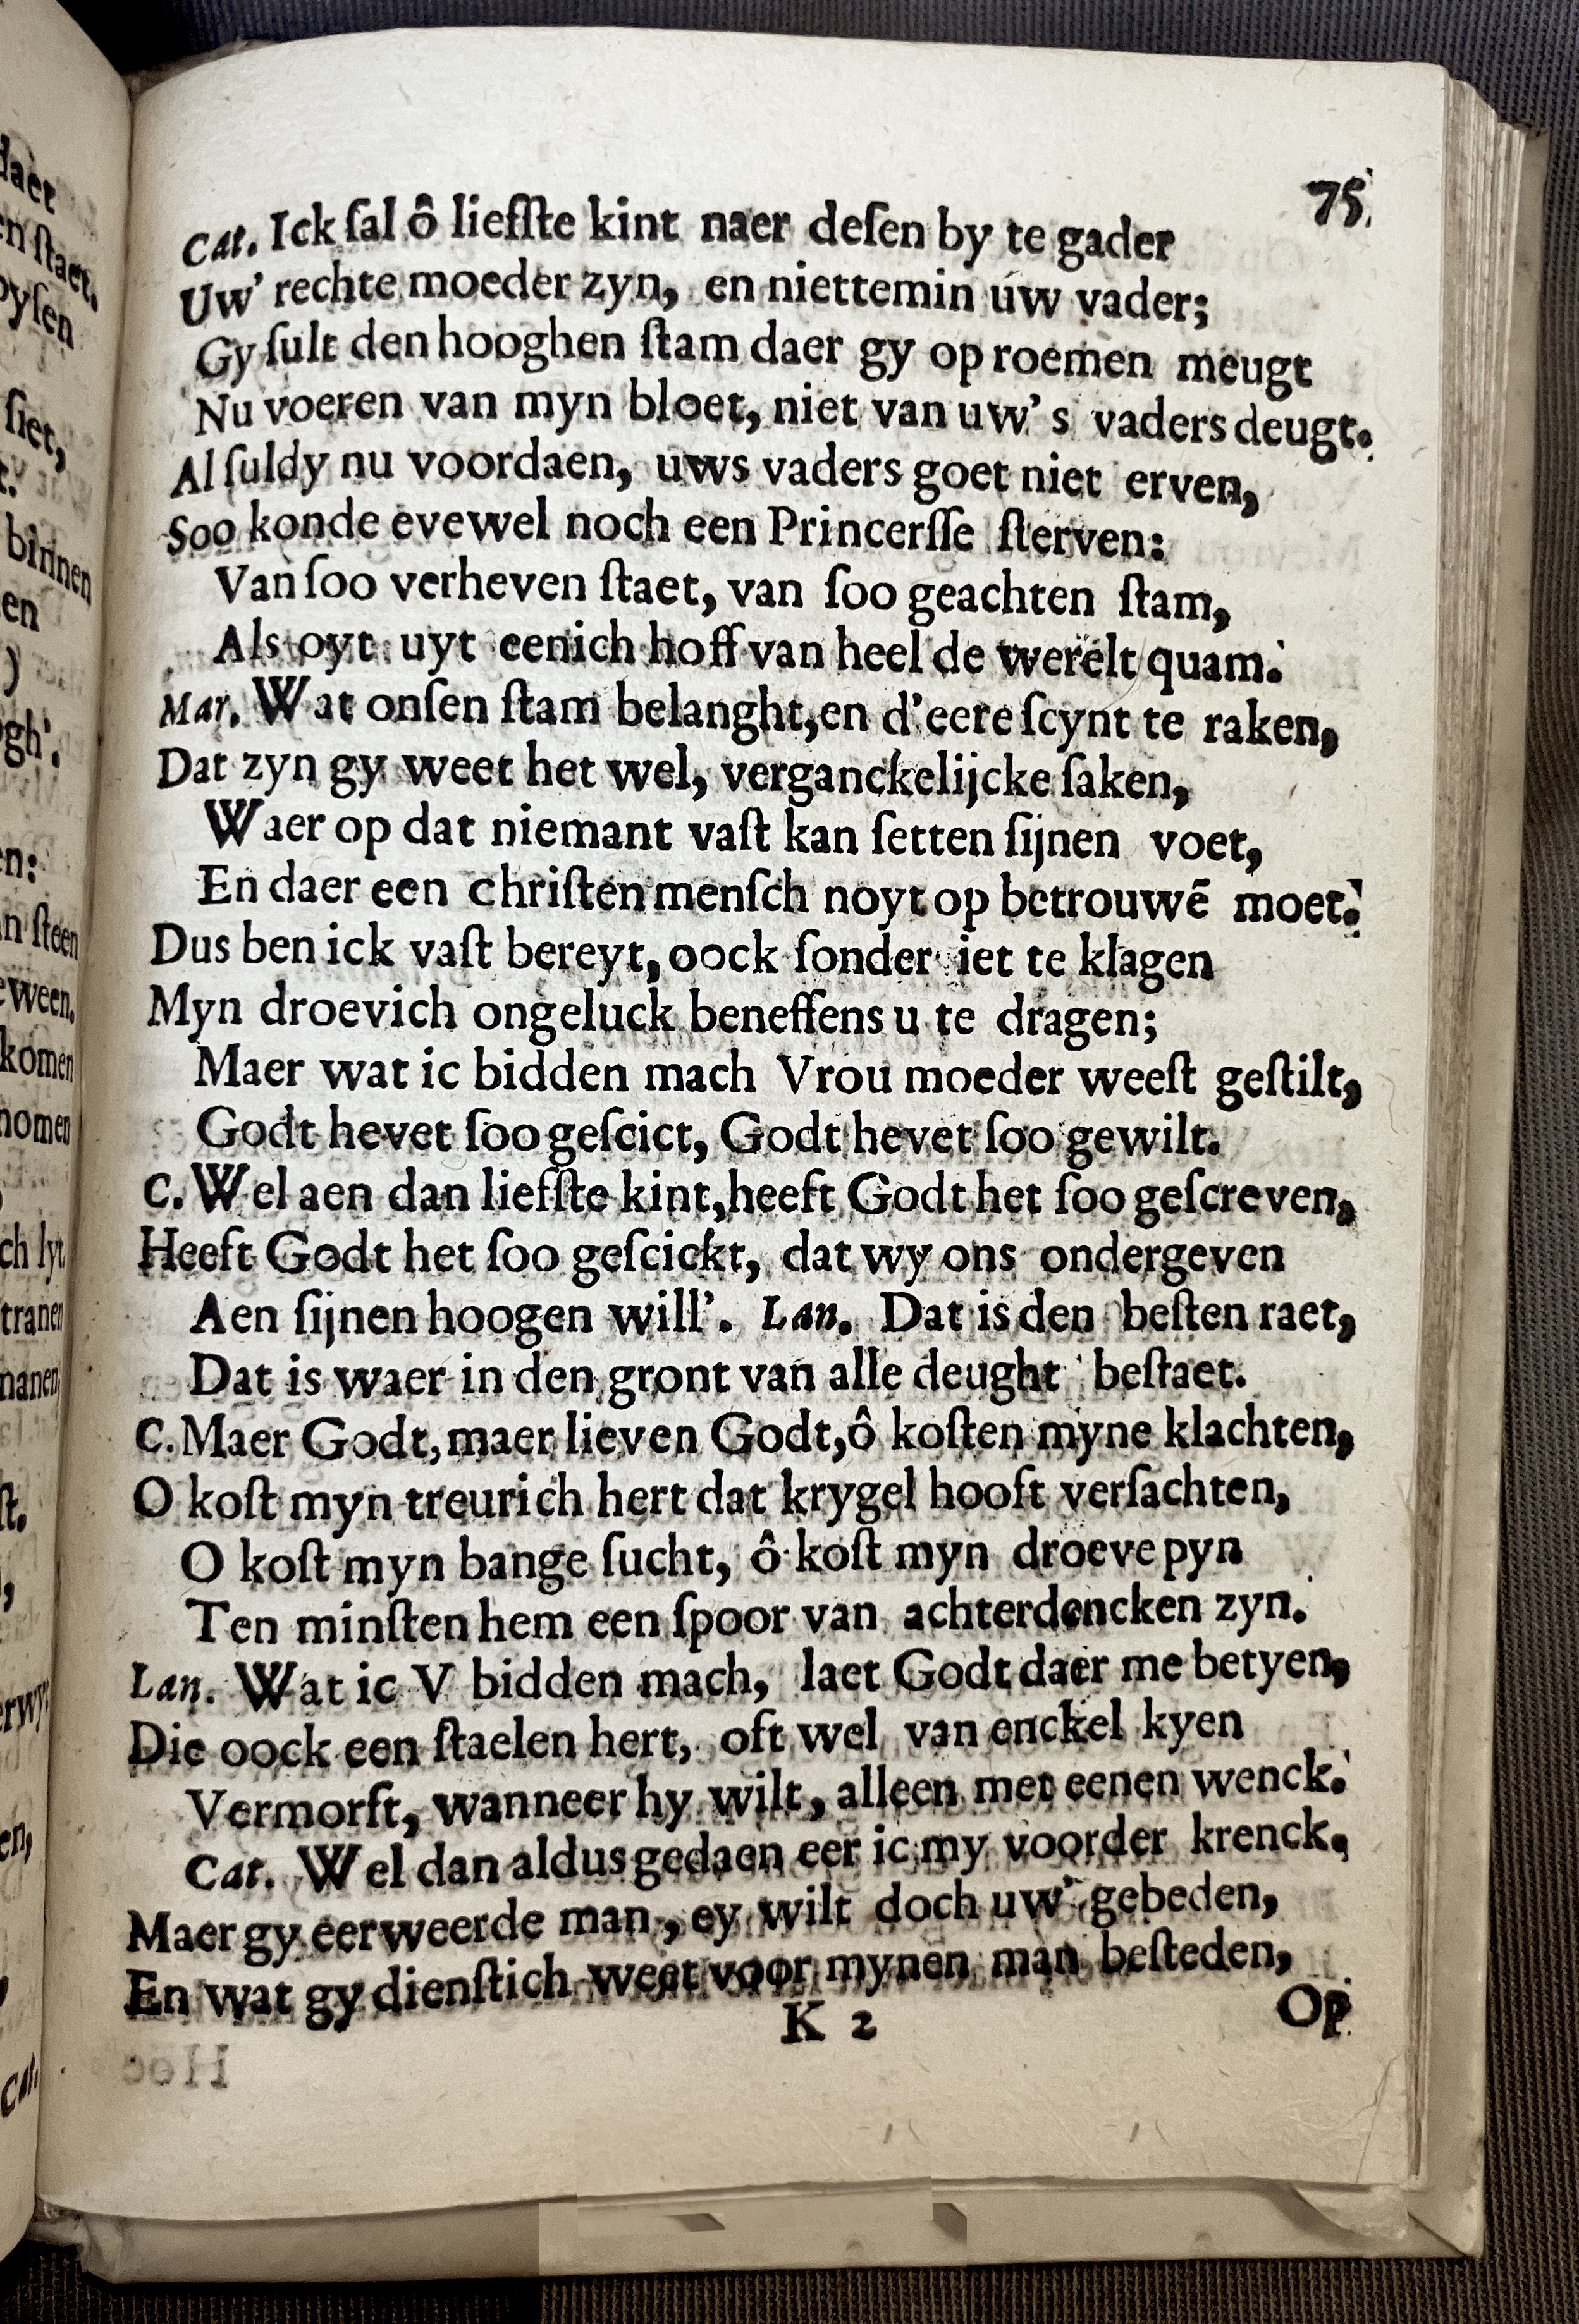 75
Cat. Ick ſal ô liefſte kint naer deſen by te gader
Uw' rechte moeder zyn, en niettemin uw vader;
Gy ſult den hooghen ſtam daer gy op roemen meugt
Nu voeren van myn bloet, niet van uw's vaders deugt.
Al ſuldy nu voordaen, uws vaders goet niet erven,
Soo konde evewel noch een Princerſſe ſterven:
Van ſoo verheven ſtaet, van ſoo geachten ſtam,
Als oyt uyt eenich hoff van heel de werelt quam.
Mar. Wat onſen ſtam belanght, en d'eere ſcynt te raken,
Dat zyn gy weet het wel, verganckelijcke ſaken,
Waer op dat niemant vaſt kan ſetten ſijnen voet,
En daer een chriſten menſch noyt op betrouwē moet.
Dus ben ick vaſt bereyt, oock ſonder iet te klagen
Myn droevich ongeluck beneffens u te dragen;
Maer wat ic bidden mach Vrou moeder weeſt geſtilt,
Godt hevet ſoo geſcict, Godt hevet ſoo gewilt.
C. Wel aen dan liefſte kint, heeft Godt het ſoo geſcreven,
Heeft Godt het ſoo geſcickt, dat wy ons ondergeven
Aen ſijnen hoogen will'. Lan. Dat is den beſten raet,
Dat is waer in den gront van alle deught beſtaet.
C. Maer Godt, maer lieven Godt, ô koſten myne klachten,
O koſt myn treurich hert dat krygel hooft verſachten,
O koſt myn bange ſucht, ô koſt myn droeve pyn
Ten minſten hem een ſpoor van achterdencken zyn.
Lan. Wat ic V bidden mach, laet Godt daer me betyen,
Die oock een ſtaelen hert, oft wel van enckel kyen
Vermorſt, wanneer hy wilt, alleen met eenen wenck.
Cat. Wel dan aldus gedaen eer ic my voorder krenck,
Maer gy eerweerde man, ey wilt doch uw' gebeden,
En wat gy dienſtich weet voor mynen man beſteden,
K 2 Op